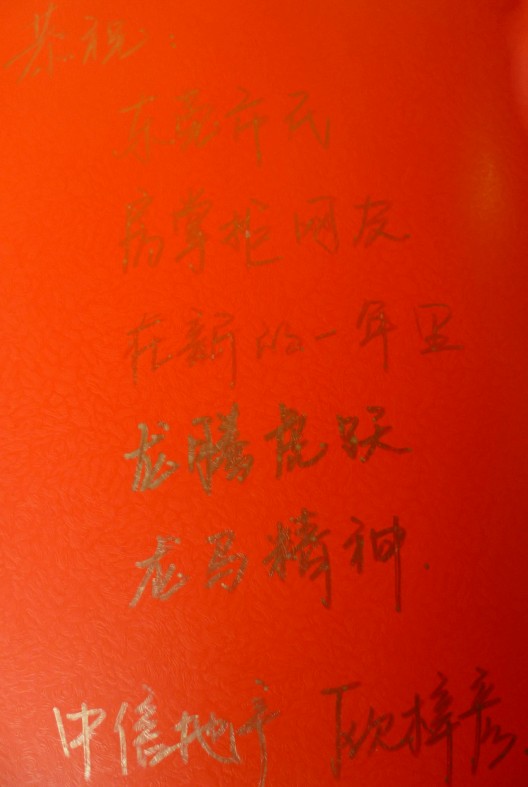 恭祝：
东莞市民
房掌柜网友
在新的一年里
龙腾虎跃
龙马精神.
中信地产 欧梓彦